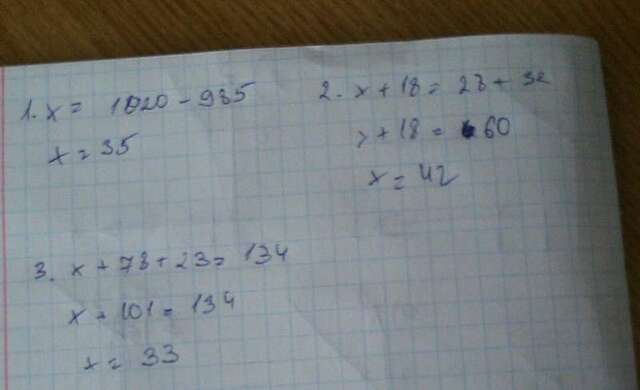 1. x = 1020 - 985
x = 35
2. x + 18 = 28 + 32
x + 18 = 60
x = 42
3. x + 78 + 23 = 134
x + 101 = 134
x = 33